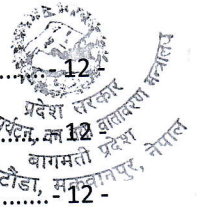 ........ - 12 -
प्रदेश सरकार
पर्यटन, वन तथा वातावरण मन्त्रालय
........ - 12 -
बागमती प्रदेश
टौंडा, मकवानपुर, नेपाल
........ - 12 -